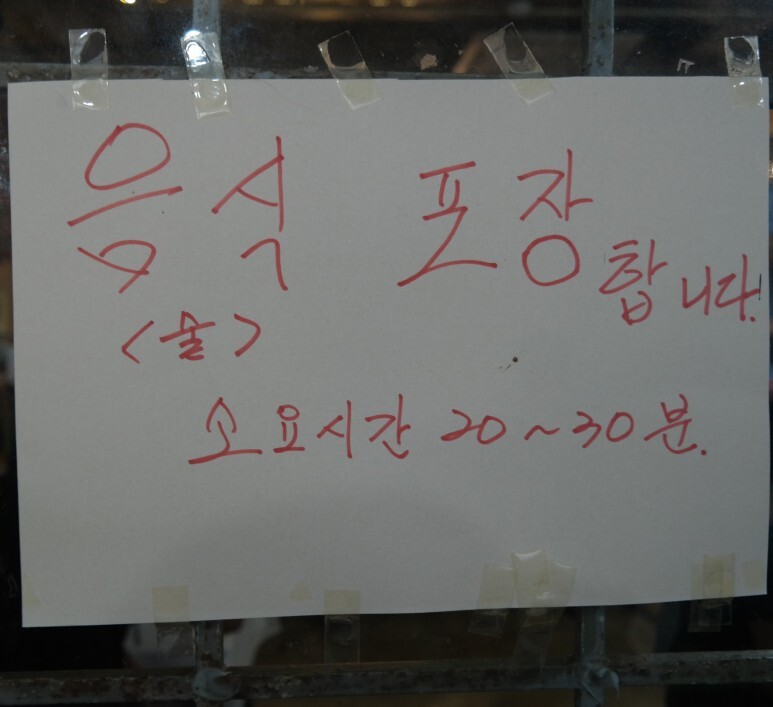 음식 포장합니다.!
<울>
소요시간 20~30분.